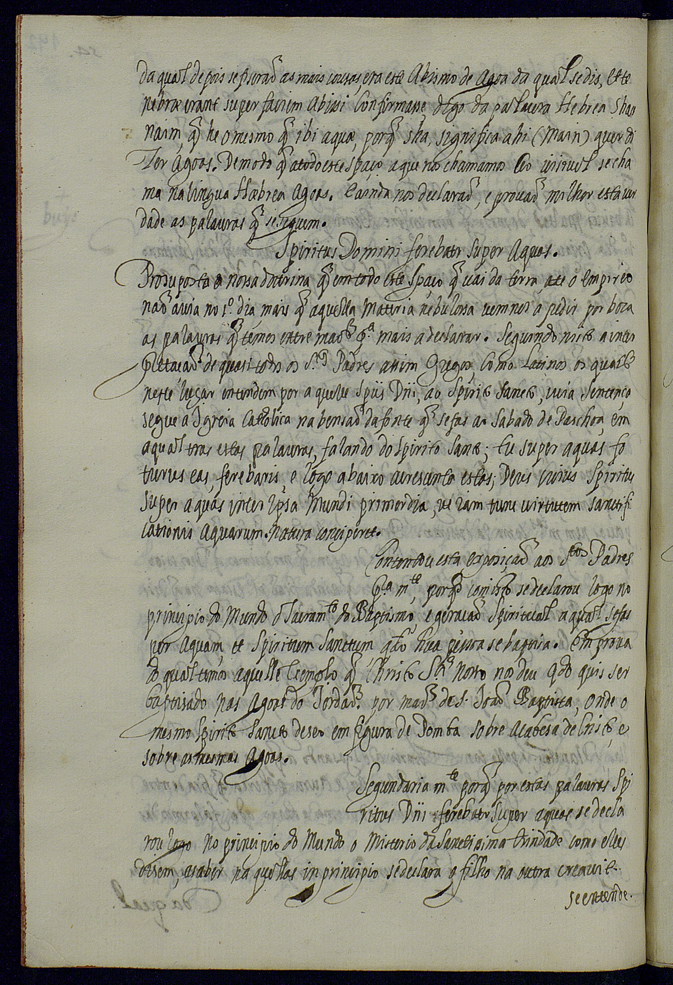 da qual depois se fizeraõ as mais cousas era este Abismo de Agoa da qual se dis, et te
nebræ erant super faciem Abissi Confirmasse digo da pallaura Hebrea Sha
naim q̃ he o mesmo q̃ ibi aquæ, porq̃ sha, significa ahi (Main) quer di
zer Agoas. Demodo q̃ a todo este spaço a que nos chamamos Ceo uisiuel se cha
ma na lingua Habrea Agoas. E ainda nos declaraõ, e prouaõ milhor esta uer
dade as palauras q̃ se seguem.
Spiritus Domini ferebatur super Aquas.
Prosuposta a nossa doutrina q̃ em todo este spaço q̃ uai da terra até o Empireo
naõ auia no 1.º dia mais q̃ aquella Materia nebulosa uem nos a pedir por boca
as palauras q̃ temos entre maõs p.ª mais a declarar. Seguindo nisto a inter
pretacaõ de quasi todos os S.tos Padres assim Gregos como Latinos os quais
neste lugar entendem por aquelle Spūs Dñi, ao Spirito Sancto, cuia sentença
segue a Igreia Catholica na bençaõ da fonte q̃ se fas ao Sabado de Paschoa, em
a qual tras estas palauras, falando do Spirito Santo; Tu super aquas fo
turus eas ferebaris, e logo abaixo acrescenta estas; Deus cuius Spiritus
super aquas inter ipsa Mundi primordia, ut iam tunc uirtutem sanctifi
cationis Aquarum natura conciperet.
Contentou esta exposiçaõ aos S.tos Padres
p.ª m.te porq̃ com isto se declarou logo no
principio do Mundo o Sacram.to do Baptismo e geracaõ Spiritual a qual se fas
per Aquam et Spiritum Sanctum q.do hũa pessoa se baptiza. Em proua
do qual temos aquelle Exemplo q̃ Christo S.r Nosso nos deu q.do quis ser
baptisado nas Agoas do Jordaõ por maõ de S. Joaõ Baptista, onde o
mesmo Spirito Sancto deseo em figura de Pomba sobre a Cabesa de Cristo, e
sobre as mesmas Agoas.
Segundaria m.te porq̃ por estas palauras Spi
ritus Dñi ferebatur super aquas se decla
rou logo no principio do Mundo o Misterio da Santissima trindade como elles
disem, a saber na quellas in principio se declara o filho na outra creauit
se entende.